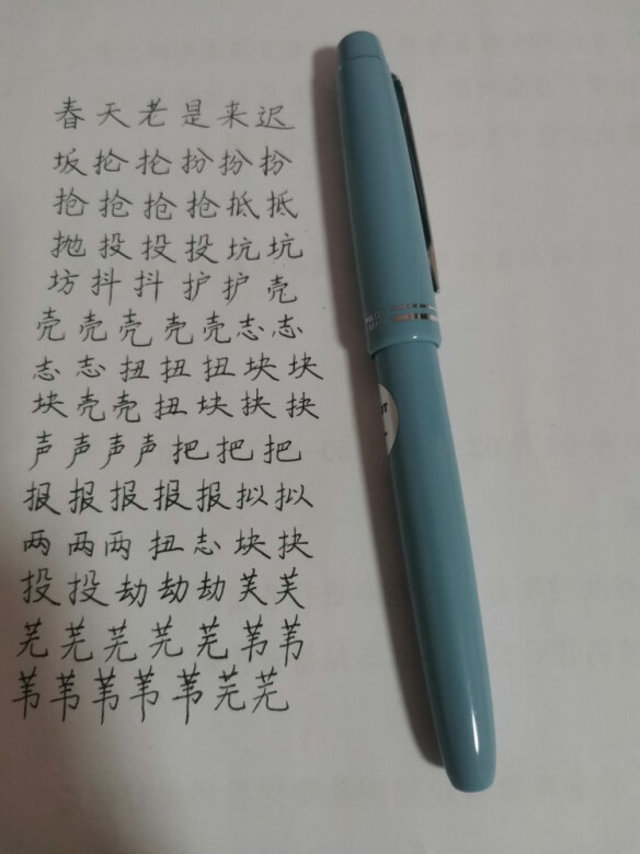 春天老是来迟
坂抡抡扮扮扮
抢抢抢抢抵抵
抛投投投坑坑
坊抖抖护护壳
壳壳壳壳壳志志
志志扭扭扭块块
块壳壳扭块抉抉
声声声声把把把
报报报报报拟拟
两两两扭志块抉
投投劫劫劫芙芙
芜芜芜芜芜苇苇
苇苇苇苇苇芜芜